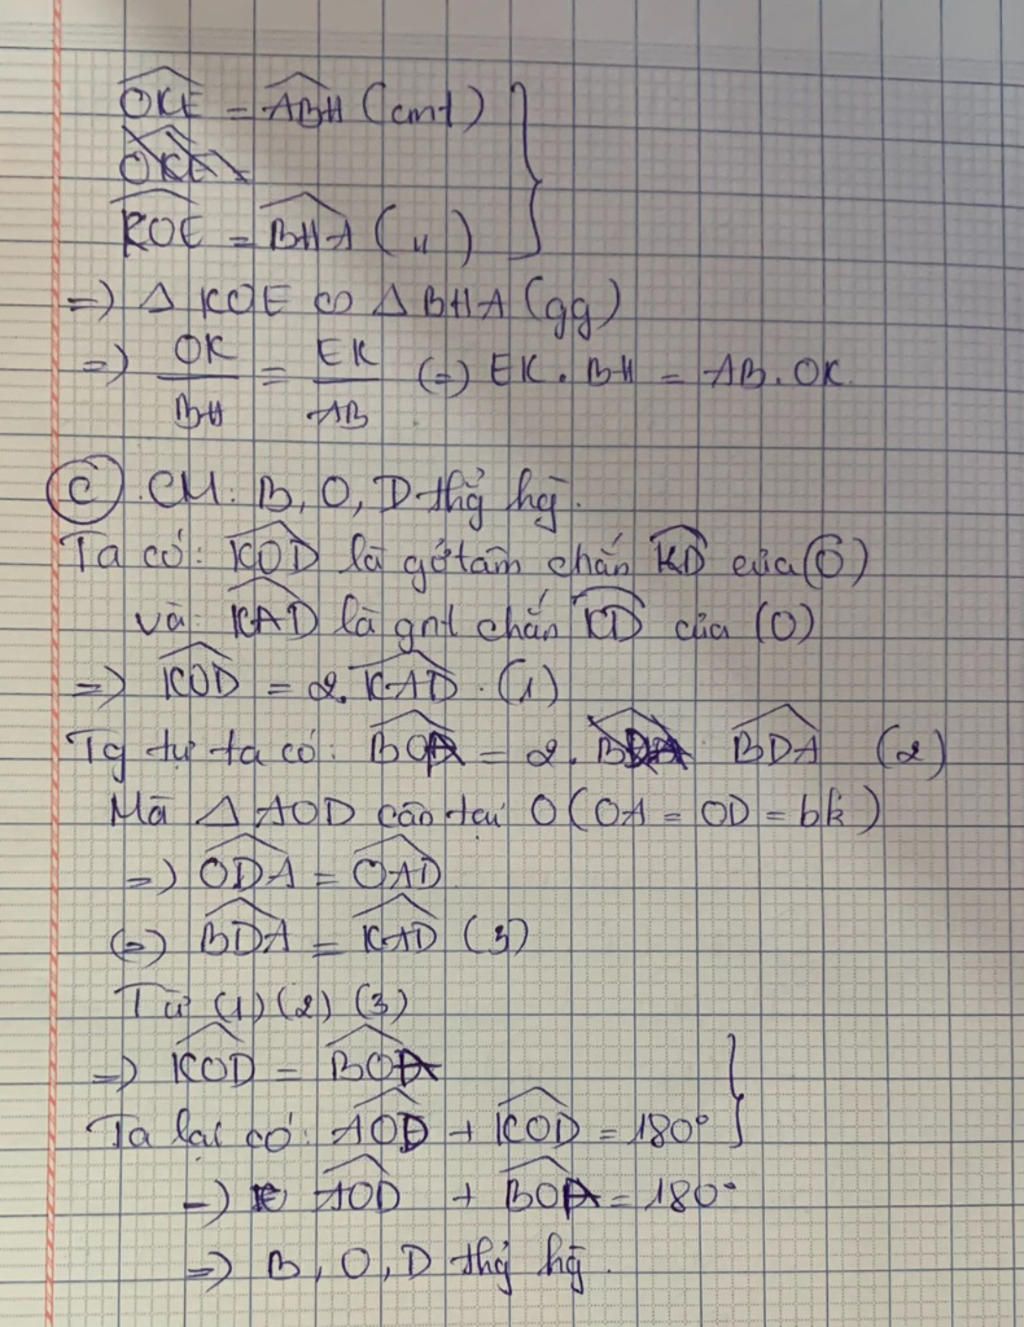 \widehat{OKE} = \widehat{ABH} (cmt)
\widehat{OKE}
\widehat{KOE} = \widehat{BHA} (")
=> Δ KOE ∽ Δ BHA (gg)
=> OK/BH = EK/AB (=) EK . BH = AB . OK.
(C). CM: B, O, D thg̉ hg̀.
Ta có: \widehat{KOD} là gó tâm chắn \overset{\frown}{KD} của (O)
và: \widehat{KAD} là gnt chắn \overset{\frown}{KD} của (O)
=> \widehat{KOD} = 2. \widehat{KAD}. (1)
Tg tự ta có: \widehat{BOA} = 2. \widehat{BDA} (2)
Mà Δ AOD cân tại O (OA = OD = bk)
=> \widehat{ODA} = \widehat{OAD}
(=) \widehat{BDA} = \widehat{KAD} (3)
Từ (1) (2) (3)
=> \widehat{KOD} = \widehat{BOA}
Ta lại có: \widehat{AOD} + \widehat{KOD} = 180°
=> \widehat{AOD} + \widehat{BOA} = 180°
=> B, O, D thg̉ hg̀.